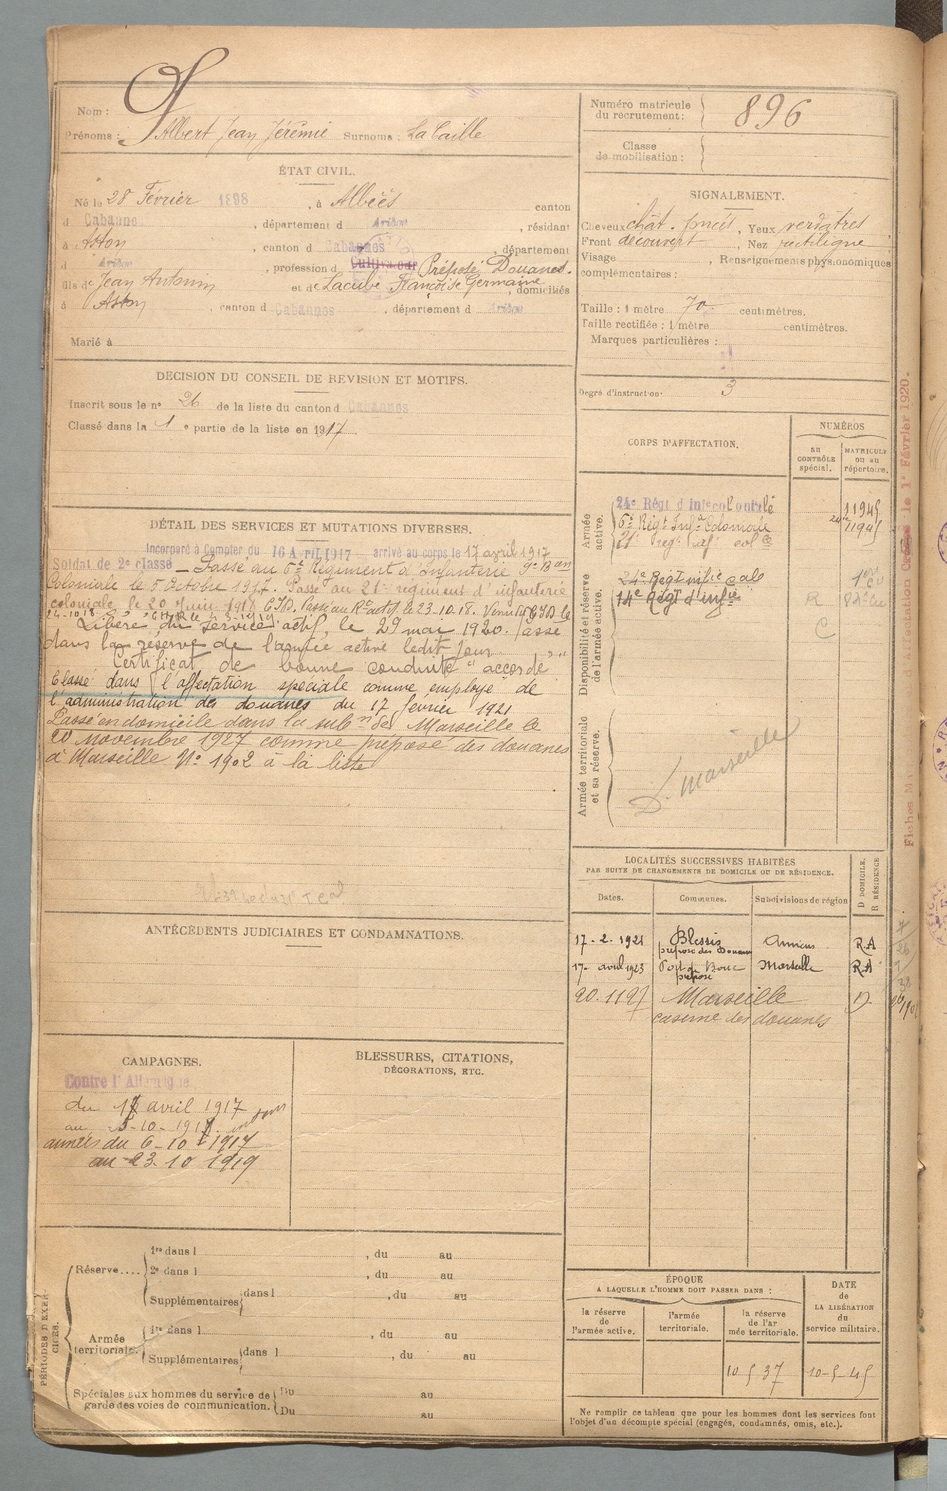 Nom :
Prénoms : Albert Jean Jérémie Surnoms :
Numéro matricule du recrutement : 896
Classe de mobilisation :
ÉTAT CIVIL.
Né le 28 Février 1898, à Albiès canton
d Cabannes, département d Ariège, résidant
à Aston, canton d Cabannes, département
d Ariège, profession d Cultivateur Préposé Douanes.
fils de Jean Antonin et de Lacube Françoise Germaine, domiciliés
à Aston, canton d Cabannes, département d Ariège
Marié à
SIGNALEMENT.
Cheveux chât. foncés, Yeux verdâtres
Front découvert Nez rectiligne
Visage, Renseignements physionomiques
complémentaires :
Taille : 1 mètre 70 centimètres.
Taille rectifiée : 1 mètre centimètres.
Marques particulières :
Degré d'instruction : 3
DECISION DU CONSEIL DE REVISION ET MOTIFS.
Inscrit sous le n° 26 de la liste du canton d Cabannes
Classé dans la 1 e partie de la liste en 1917
DÉTAIL DES SERVICES ET MUTATIONS DIVERSES.
Incorporé à Compter du 16 Avril 1917 arrivé au corps le 17 avril 1917
Soldat de 2e classe _ Passé au 6e Régiment d'Infanterie
Coloniale le 5 Octobre 1917. Passé au 21e régiment d'infanterie
coloniale le 20 Juin 1918 Passé au le 23.10.18.
Libéré du Service actif, le 29 mai 1920. Passé
dans la réserve de l'armée active ledit jour
Certificat de bonne conduite "accordé"
Classé dans l'affectation spéciale comme employé de
l'administration des douanes du 17 février 1921
Passé en domicile dans la subon de Marseille le
20 Novembre 1927 comme préposé des douanes
à Marseille N° 1902 à la liste
CORPS D'AFFECTATION.
NUMÉROS
au CONTRÔLE spécial.
MATRICULE ou au répertoire.
Armée active.
24e Régt d'inf. coloniale 11945
6e Régt Infie Coloniale 11945
21e rég. inf. col
Disponibilité et réserve de l'armée active.
24e Régt infie cole
14e Régt d'infie
R
C
Armée territoriale et sa réserve.
D. Marseille
Fiches
LOCALITÉS SUCCESSIVES HABITÉES
PAR SUITE DE CHANGEMENTS DE DOMICILE OU DE RÉSIDENCE.
Dates. Communes. Subdivisions de région D DOMICILE. R RÉSIDENCE
17-2-1921 préposé des Douanes Amiens R.A
17- avril 1923 Port de Bouc préposé Marseille R.A
20.11 27 Marseille D.
caserne des douanes
ANTÉCÉDENTS JUDICIAIRES ET CONDAMNATIONS.
CAMPAGNES.
Contre l'Allemagne
du 17 avril 1917
au 5-10-1917
du 6-10-1917
au 23.10 1919
BLESSURES, CITATIONS,
DÉCORATIONS, ETC.
PÉRIODES D'EXERCICES.
Réserve....
1re dans l, du au
2e dans l, du au
Supplémentaires dans l, du au
Armée territoriale.
1re dans l, du au
Supplémentaires dans l, du au
Spéciales aux hommes du service de garde des voies de communication.
Du au
Du au
ÉPOQUE
A LAQUELLE L'HOMME DOIT PASSER DANS :
DATE de LA LIBÉRATION du service militaire.
la réserve de l'armée active.
l'armée territoriale.
la réserve de l'armée territoriale.
10 5 37
10-5-45
Ne remplir ce tableau que pour les hommes dont les services font
l'objet d'un décompte spécial (engagés, condamnés, omis, etc.).